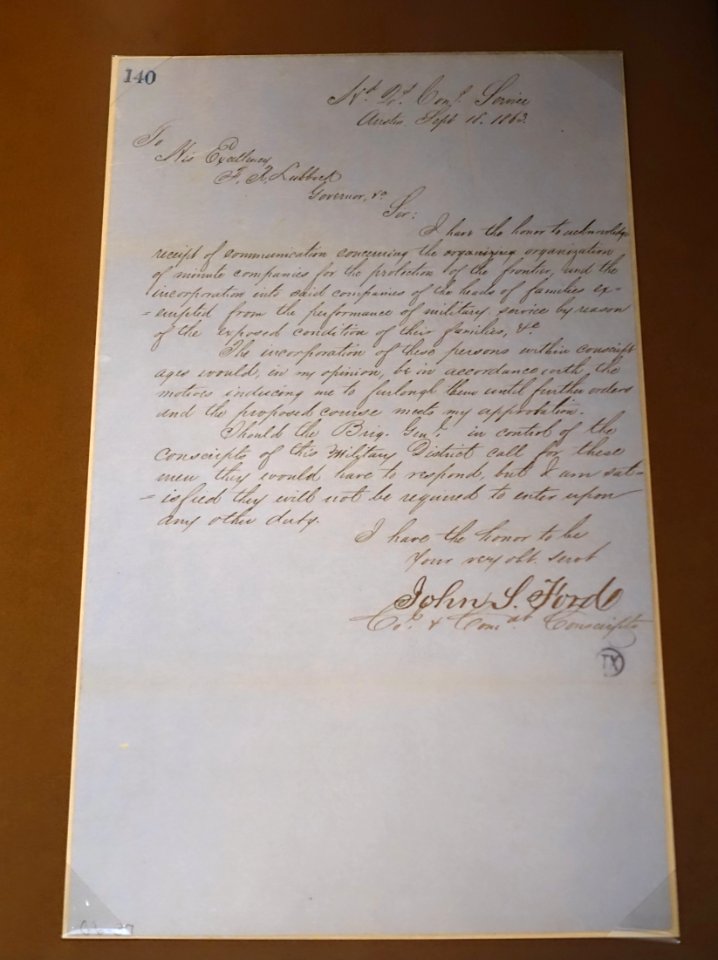 140
Hd. Qr. Con. Service
Austin Sept 18. 1863.
To
His Excellency
F. R. Lubbock
Governor, &c
Sir:
I have the honor to acknowledge
receipt of communication concerning the organizing organization
of minute companies for the protection of the frontier, and the
incorporation into said companies of the heads of families ex-
-empted from the performance of military service by reason
of the exposed condition of their families, &c
The incorporation of these persons within conscript
ages would, in my opinion, be in accordance with, the
motives inducing me to furlough them until further orders
and the proposed course meets my approbation.
Should the Brig. Genl. in control of the
conscripts of this Military District call for these
men they would have to respond, but I am sat-
-isfied they will not be required to enter upon
any other duty.
I have the honor to be
Your very obt. servt
John S. Ford
Col & Comdt Conscripts
TX